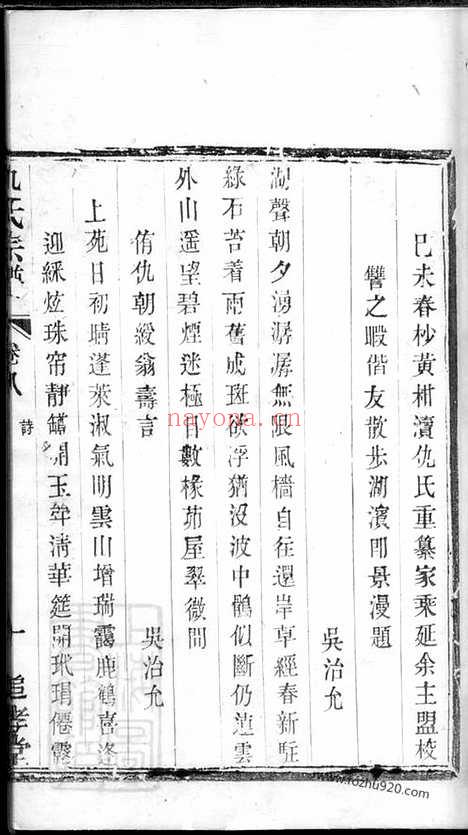 己未春杪黃柑瀆仇氏重纂家乘延余主盟校
讐之暇偕友散步湖濱即景漫題
吳治允
湖聲朝夕湧潺潺無限風檣自往還岸草經春新駐
綠石苔着雨舊成斑欲浮猶沒波中鶻似斷仍連雲
外山遥望碧煙迷極目數椽茆屋翠微間
侑仇朝綬翁壽言
吳治允
上苑日初晴蓬萊淑氣明雲山增瑞靄鹿鶴喜逢
迎綵炫珠帘靜鏽開玉斚清華筵開玳瑁僊露
仇氏宗譜
卷八
詩
一
追孝堂
nayona.cn
www.fozhu920.com